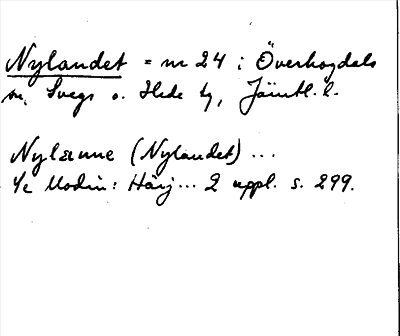 Nylandet = nr 24 i Överhogdals
sn, Svegs o. Hede tg, Jämtl. l.
Nylænne (Nylandet) ...
½ Modin: Härj... 2 uppl. s. 299.